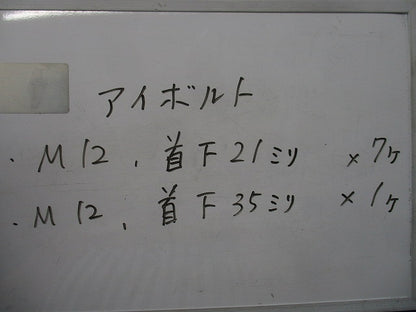 アイボルト
・M12、首下21ミリ ×7ケ
・M12、首下35ミリ ×1ケ